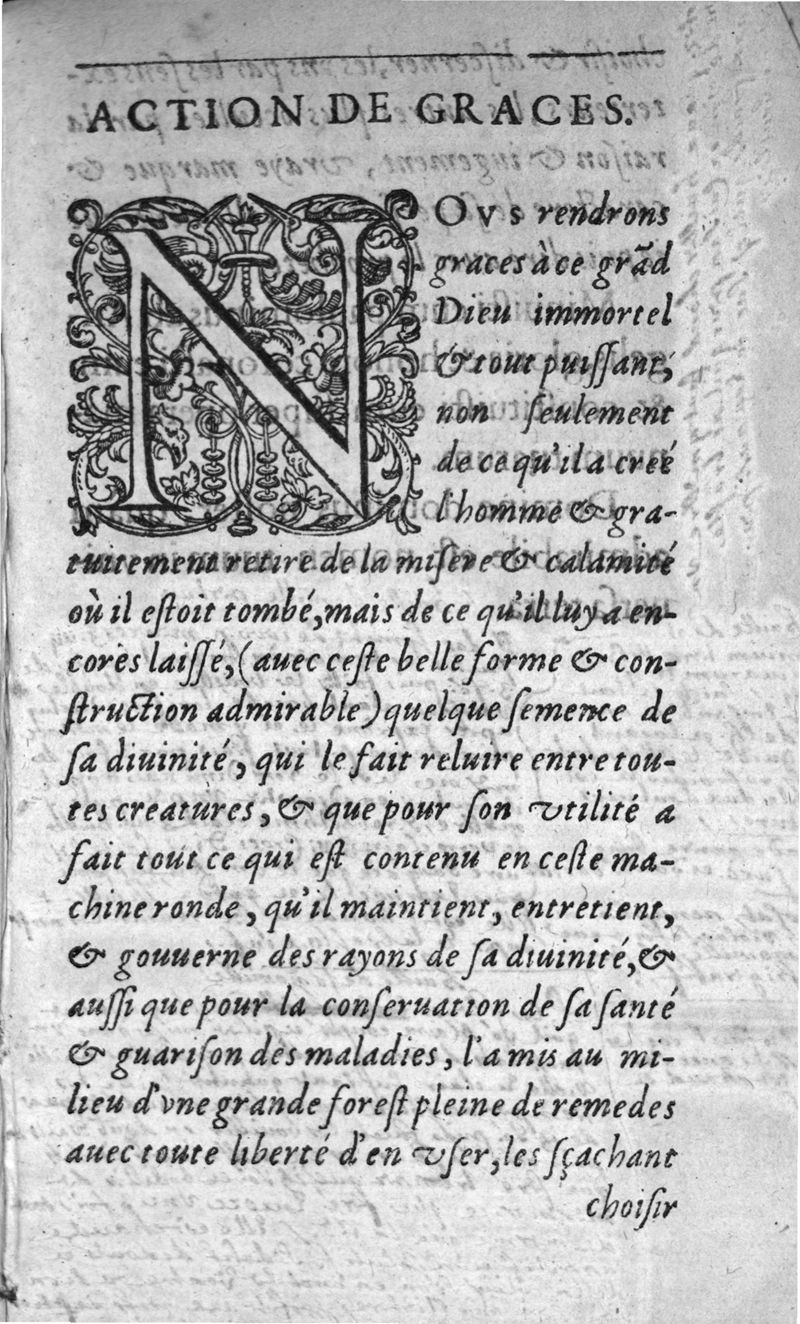 ACTION DE GRACES.
NOVS rendrons
graces à ce grãd
Dieu immortel
& tout puiſſant,
non ſeulement
de ce qu'il a creé
l'homme & gra-
tuitement retire de la miſere & calamité
où il eſtoit tombé, mais de ce qu'il luy a en-
cores laiſſé, (auec ceſte belle forme & con-
ſtruction admirable) quelque ſemence de
ſa diuinité, qui le fait reluire entre tou-
tes creatures, & que pour ſon vtilité a
fait tout ce qui eſt contenu en ceſte ma-
chine ronde, qu'il maintient, entretient,
& gouuerne des rayons de ſa diuinité, &
auſſi que pour la conſeruation de ſa ſanté
& guariſon des maladies, l'a mis au mi-
lieu d'vne grande foreſt pleine de remedes
auec toute liberté d'en vſer, les ſçachant
choiſir